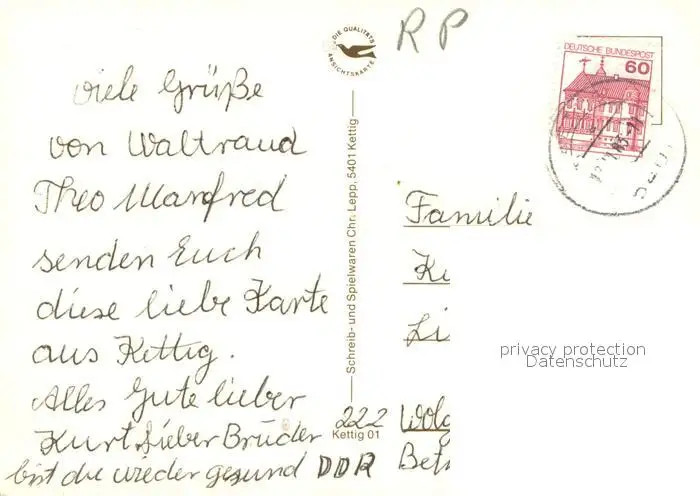 viele Grüße
von Waltraud
Theo Manfred
senden Euch
diese liebe Karte
aus Kettig.
Alles Gute lieber
Kurt lieber Bruder
bist du wieder gesund
DIE QUALITÄTS
ANSICHTSKARTE
Schreib- und Spielwaren Chr. Lepp. 5401 Kettig
222
Kettig 01
DDR
RP
DEUTSCHE BUNDESPOST
60
Familie
Ke
Li
privacy protection
Datenschutz
Wolg
Bets